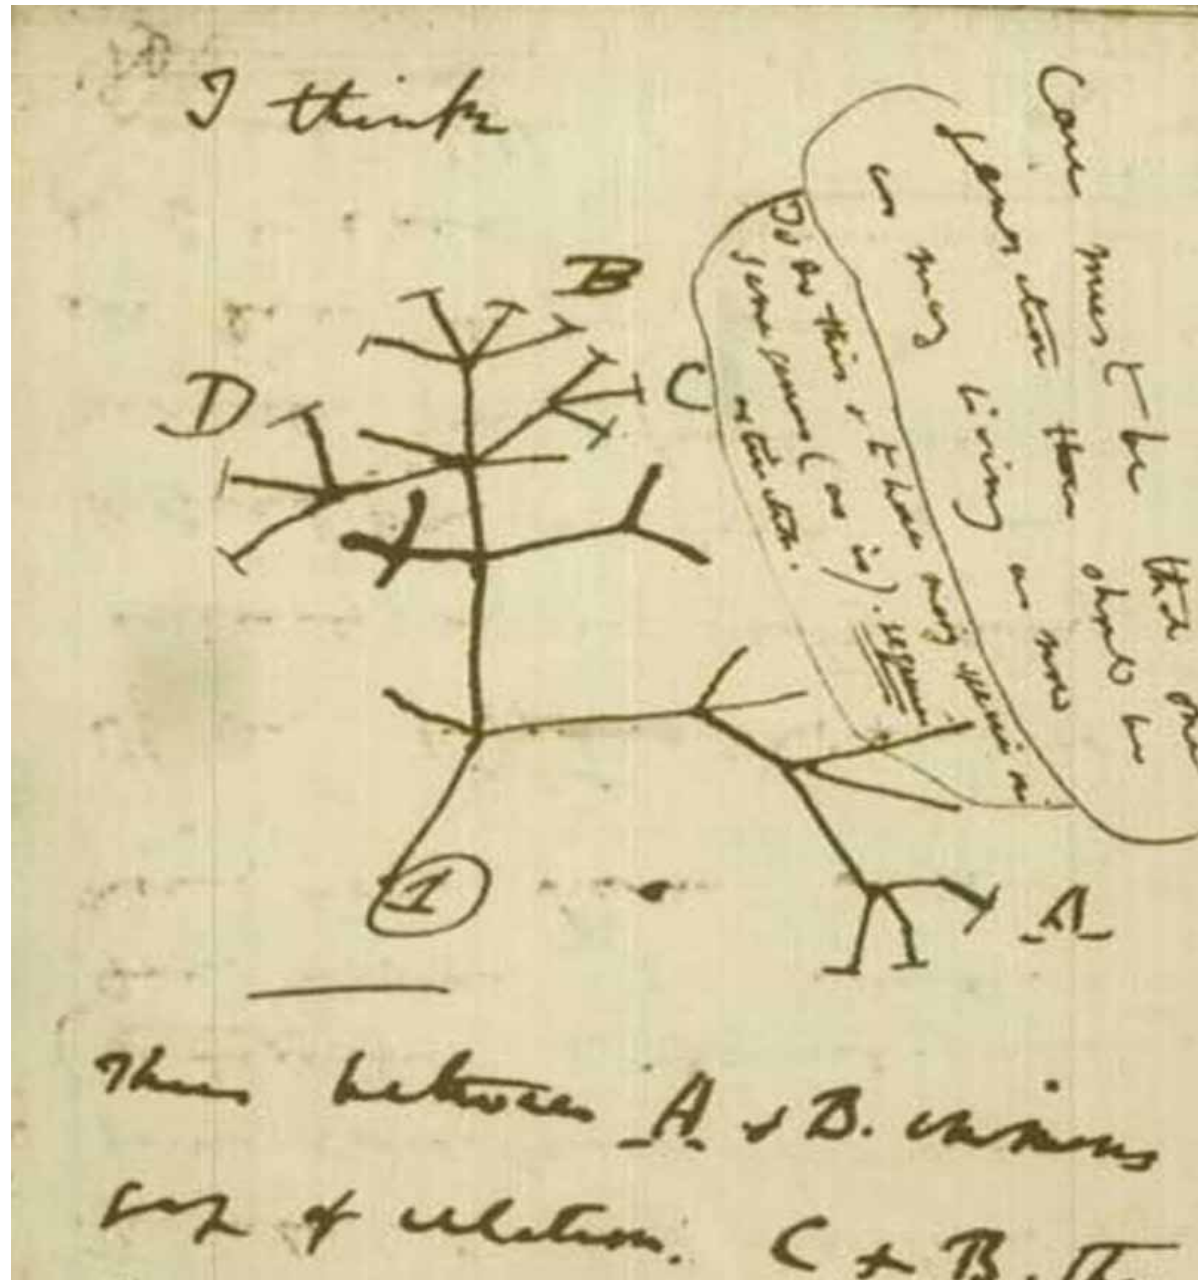 I think
B
D
C
Case must be that one
generation then should be
as many living as now
To do this & to have many species in
same genus (as is). requires
extinction.
1
A
Thus between A & B. immense
gap of relation. C & B. The